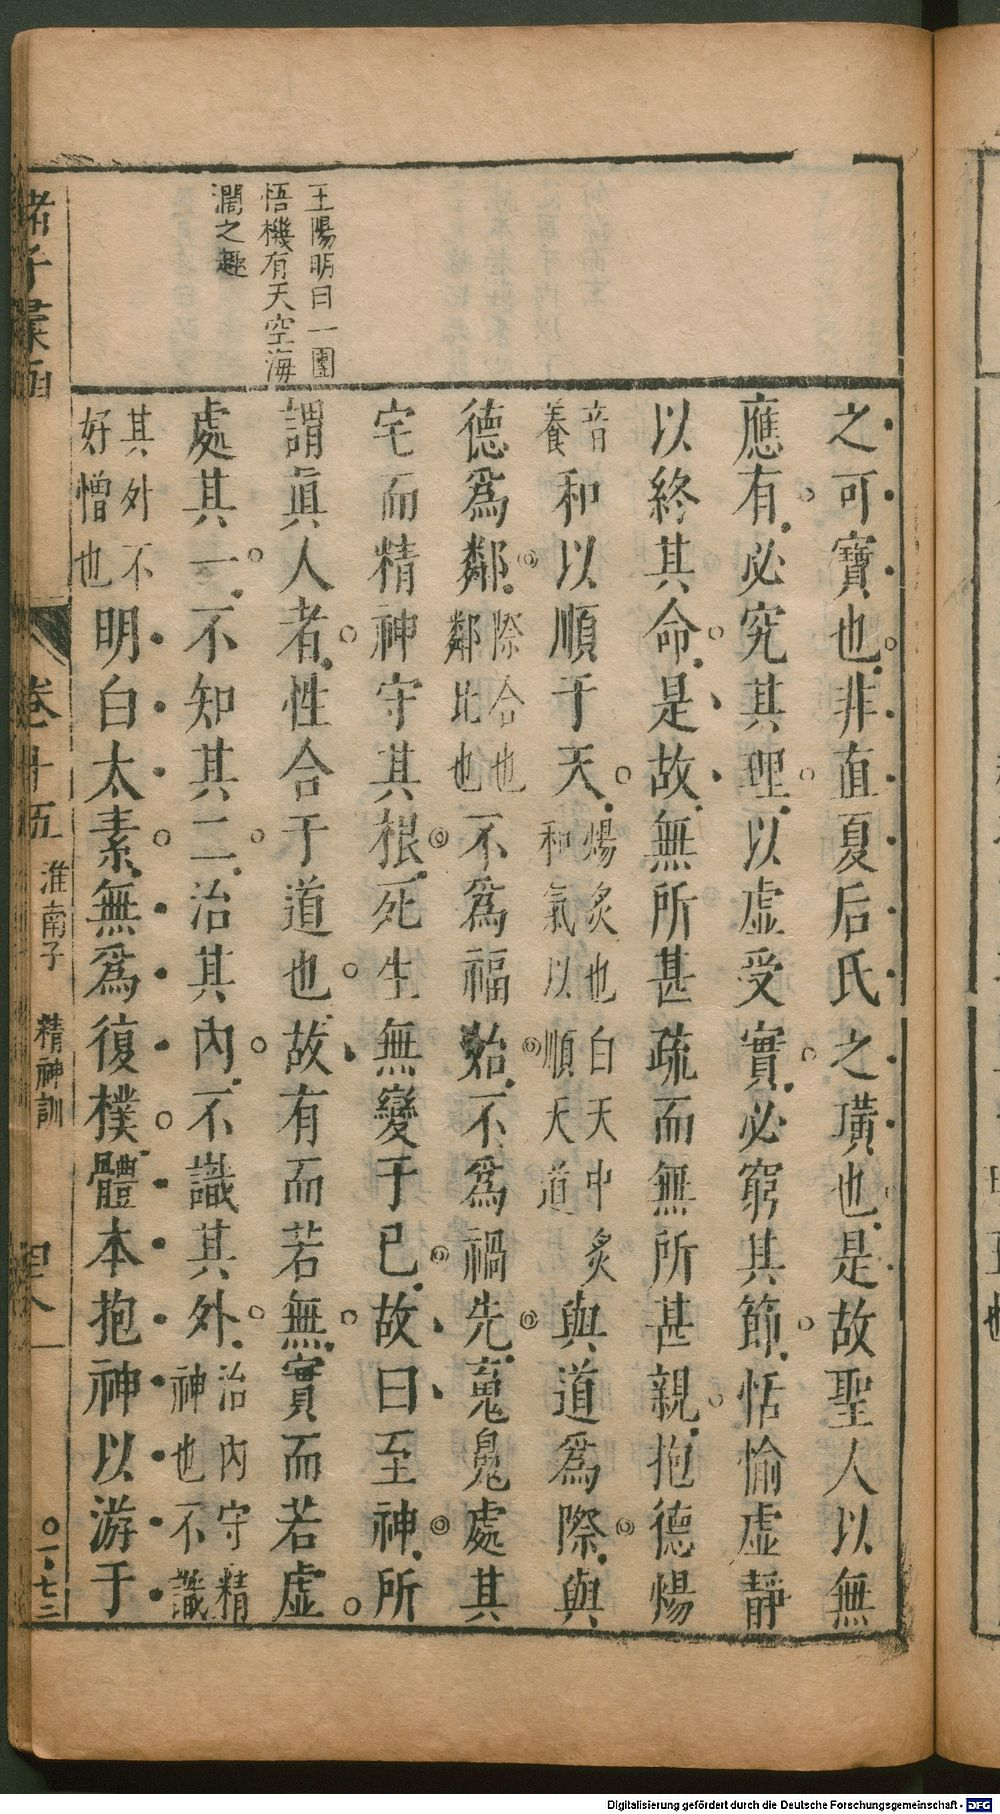 王陽明曰一團
悟機有天空海
濶之趣
之可寶也非直夏后氏之璜也是故聖人以無
應有必究其理以虛受實必窮其節恬愉虛靜
以終其命是故無所甚疏而無所甚親抱德煬
音
養
和以順于天
煬炙也白天中炙
和氣以順天道
與道為際與
德為鄰
際合也
鄰比也
不為福始不為禍先䰟魄處其
宅而精神守其根死生無變于已故曰至神所
謂眞人者性合于道也故有而若無實而若虛
處其一不知其二治其內不識其外
治內守精
神也不識
其外不
好憎也
明白太素無為復樸體本抱神以游于
諸子彙函
卷十五
淮南子
精神訓
Digitalisierung gefördert durch die Deutsche Forschungsgemeinschaft - DFG